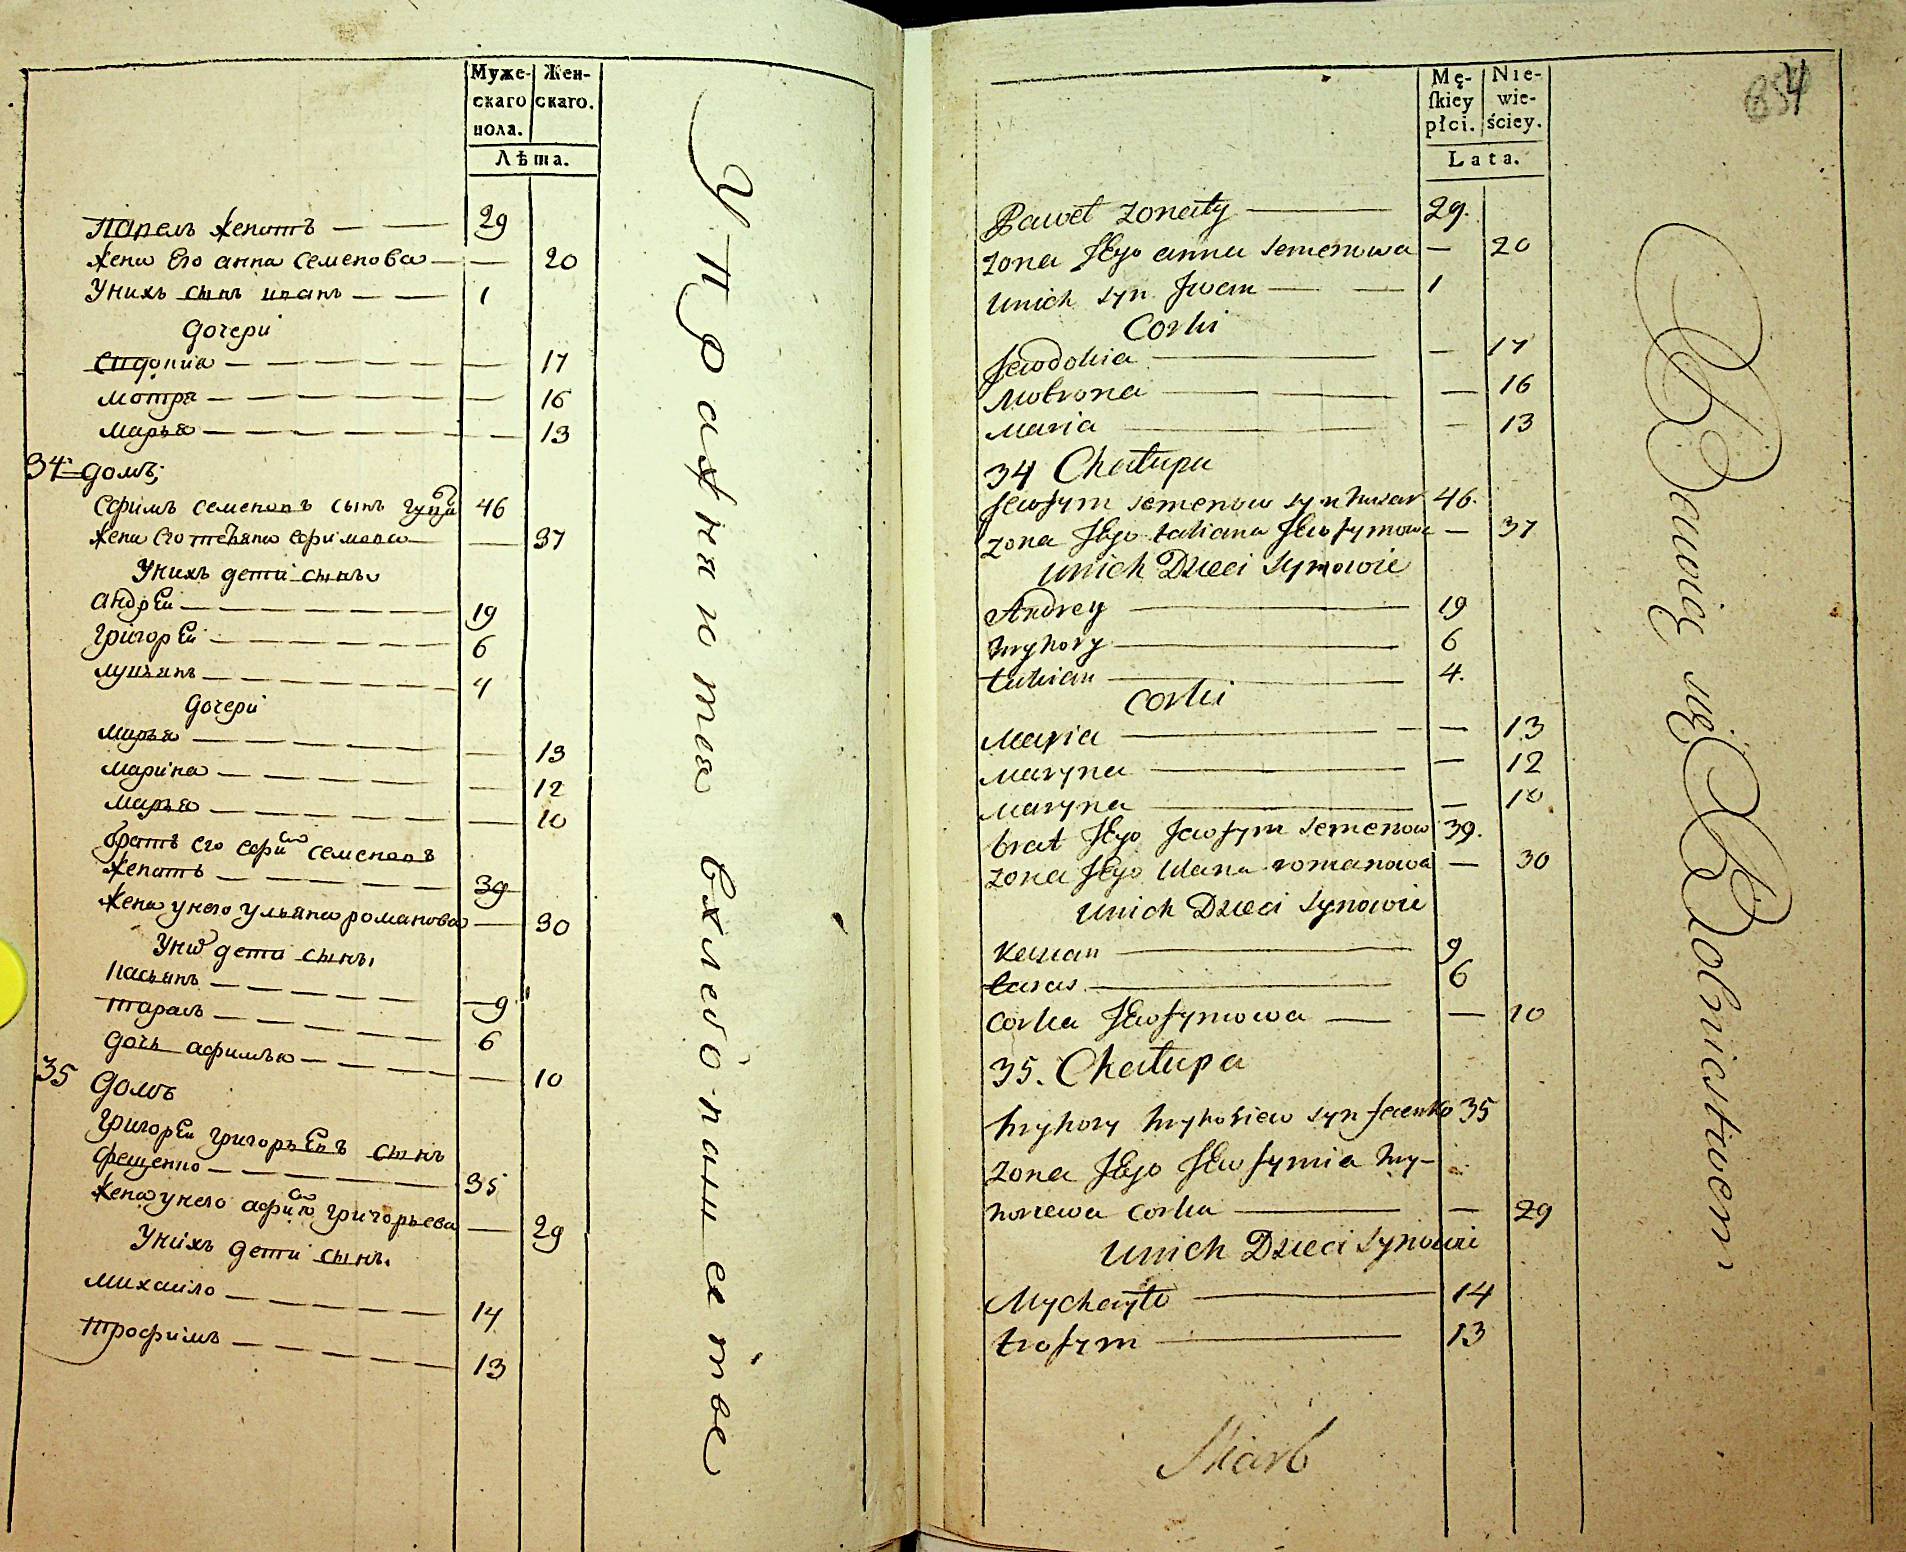 Муже- Жен-
скаго скаго.
пола.
Лѣта.
Павелъ женатъ — — 29
жена Его анна семенова — — 20
Унихъ сынъ иванъ — — 1
Дочери
Евдокия — — 17
мотря — — 16
марья — — 13
34 домъ;
Ефимъ семеновъ сынъ 46
жена Его татьяна ефимова — 37
Унихъ дети сынъ
андрей — 19
григорей — 6
лукьянъ — 4
Дочери
марья — 13
марина — 12
марья — 10
братъ его ефимъ семеновъ
женатъ — 39
жена унего ульяна романова — 30
Уних дети сынъ,
касьянъ — 9
тарасъ — 6
дочь афимью — 10
35 домъ
григорей григорьевъ сынъ
фещенко — 35
жена унего афимию григорьева — 29
Унихъ дети сынъ.
михаило — 14
трофимъ — 13
Упражняются в хлебопашестве
Mę- Nie-
skiey wie-
płci. ściey.
Lata.
Paweł zonaty — 29.
zona Jego anna semenowa — 20
unich syn Jwan — — 1
Corki
Jewdokia — — 17
Motrona — — 16
Maria — — 13
34 Chałupa
Jewfym semenow syn husar 46.
zona Jego tatiana Jewfymowa — 37
unich Dzieci Synowie
Andrey — 19
hryhory — 6
łukian — 4.
Corki
Maria — — 13
Maryna — — 12
Maryna — — 10
brat Jego Jewfym semenow 39.
zona Jego Ulana romanowa — 30
unich Dzieci Synowie
Kasian — 9
taras — 6
Corka Jewfymowa — — 10
35. Chałupa
hryhory hryhoriew syn fecenko 35
zona Jego Jewfymia hry-
horiewa corka — — 29
unich Dzieci Synowie
Mychayło — 14
trofym — 13
Skarb
Bawię się Rolnictwem
4